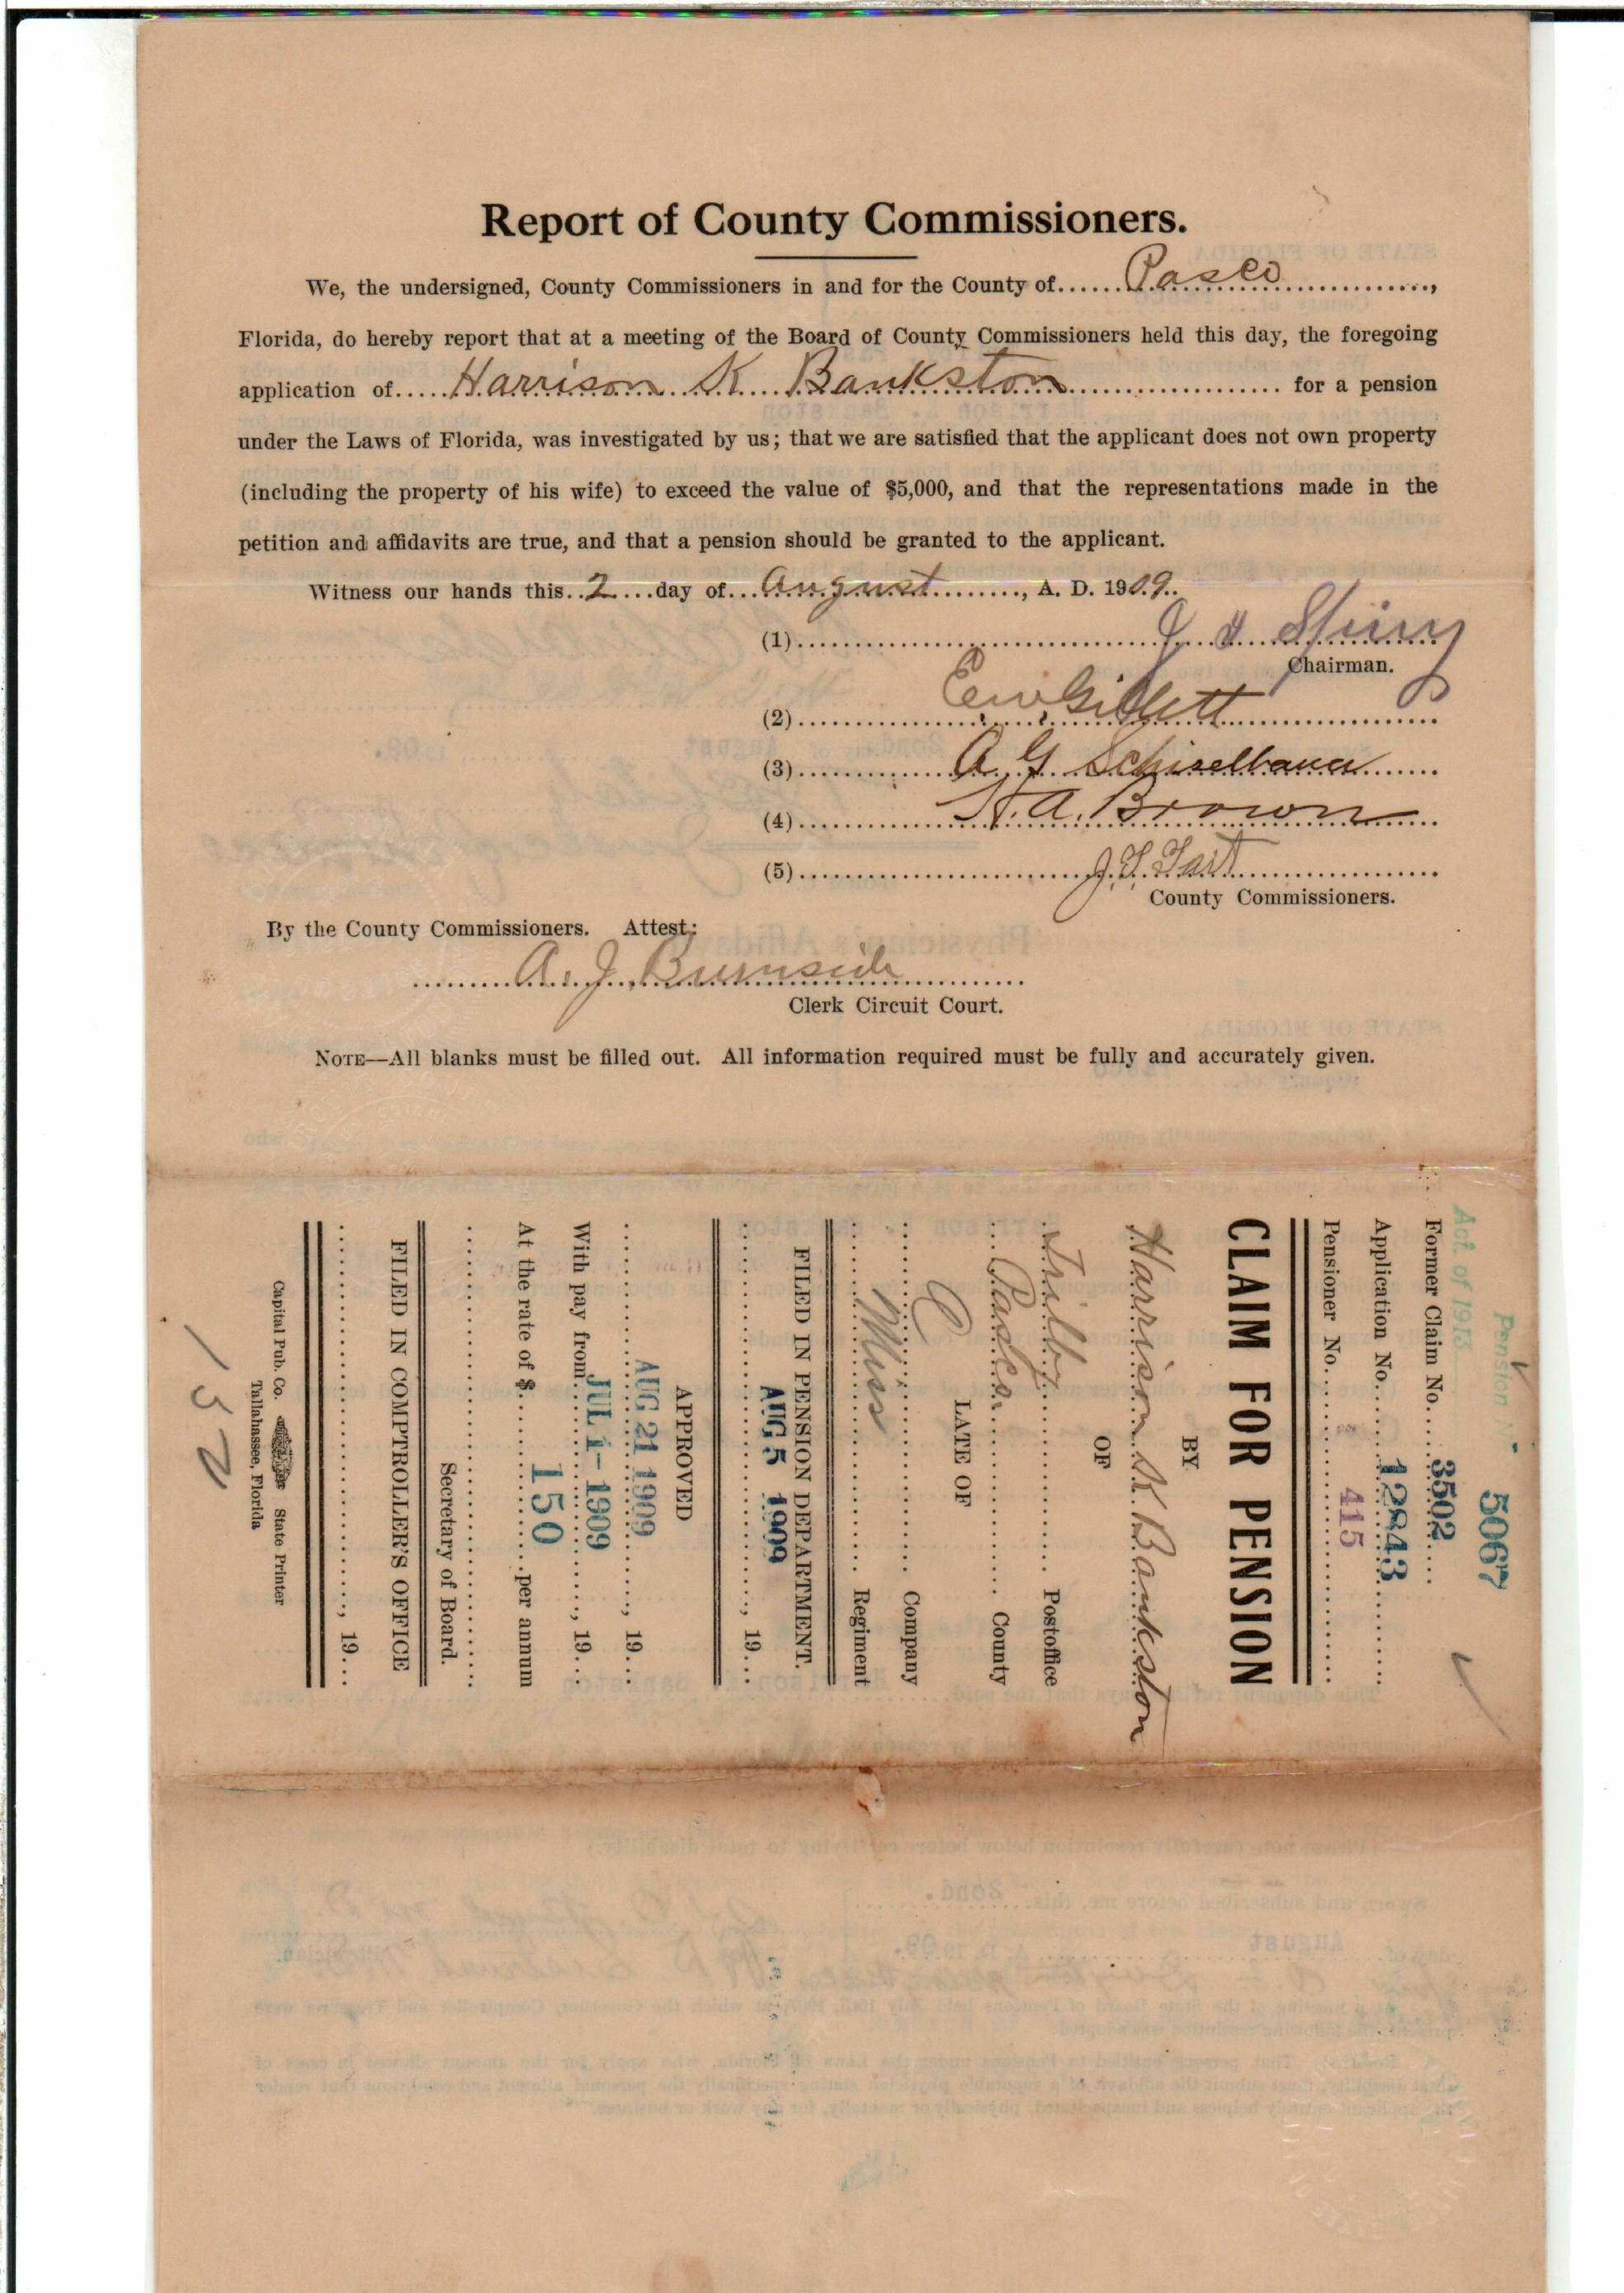 Report of County Commissioners.
We, the undersigned, County Commissioners in and for the County of...... Pasco ..............,
Florida, do hereby report that at a meeting of the Board of County Commissioners held this day, the foregoing
application of..... Harrison K. Bankston .................... for a pension
under the Laws of Florida, was investigated by us; that we are satisfied that the applicant does not own property
(including the property of his wife) to exceed the value of $5,000, and that the representations made in the
petition and affidavits are true, and that a pension should be granted to the applicant.
Witness our hands this..2....day of...August........., A. D. 1909..
(1)
Chairman.
(2)
(3) A. G.
(4) H. A. Brown
(5)
County Commissioners.
By the County Commissioners. Attest:
A. J. Burnside
Clerk Circuit Court.
NOTE—All blanks must be filled out. All information required must be fully and accurately given.
Pension No. 5067
Act of 1913
Former Claim No. 3502
Application No. 12843
Pensioner No. 415
CLAIM FOR PENSION
BY
Harrison K. Bankston
OF
Trilby Postoffice
Pasco County
LATE OF
C Company
Miss Regiment
FILED IN PENSION DEPARTMENT.
AUG 5 1909 , 19...
APPROVED
AUG 21 1909 , 19...
With pay from JUL 1-1909 , 19...
At the rate of $ 150 per annum
Secretary of Board.
FILED IN COMPTROLLER'S OFFICE
, 19...
Capital Pub. Co. State Printer
Tallahassee, Florida
132